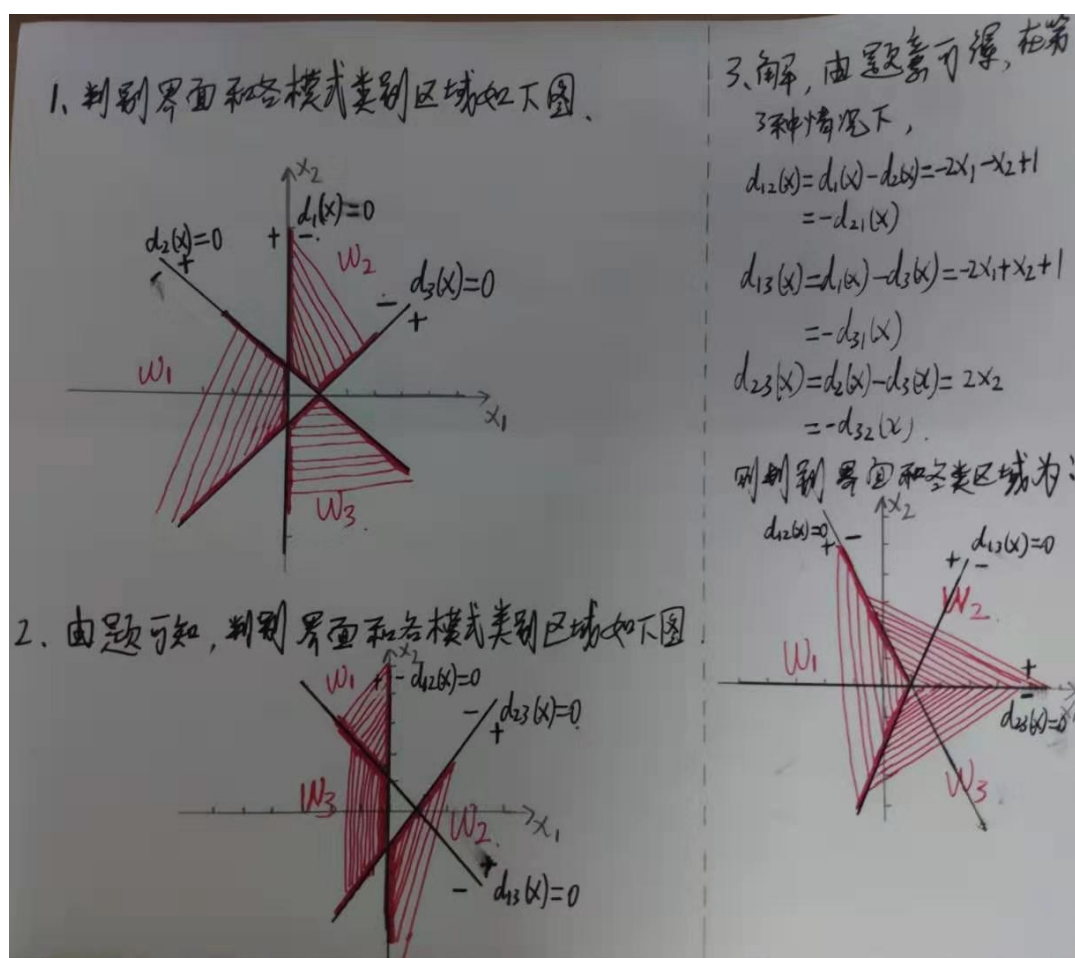 1、判别界面和各模式类别区域如下图.
x₂
d₁(x)=0
d₂(x)=0
+ -
+
W₂
d₃(x)=0
-
+
W₁
x₁
W₃.
2、由题可知,判别界面和各模式类别区域如下图.
x₂
W₁
+ - d₁₂(x)=0
- d₂₃(x)=0
+
W₃
W₂.
x₁
+
- d₁₃(x)=0
3、解,由题意可得,在第
3种情况下,
d₁₂(x)=d₁(x)-d₂(x)=-2x₁-x₂+1
=-d₂₁(x)
d₁₃(x)=d₁(x)-d₃(x)=-2x₁+x₂+1
=-d₃₁(x)
d₂₃(x)=d₂(x)-d₃(x)=2x₂
=-d₃₂(x).
则判别界面和各类区域为:
x₂
d₁₂(x)=0
+ -
d₁₃(x)=0
+ -
W₂
W₁
+
-
d₂₃(x)=0
W₃